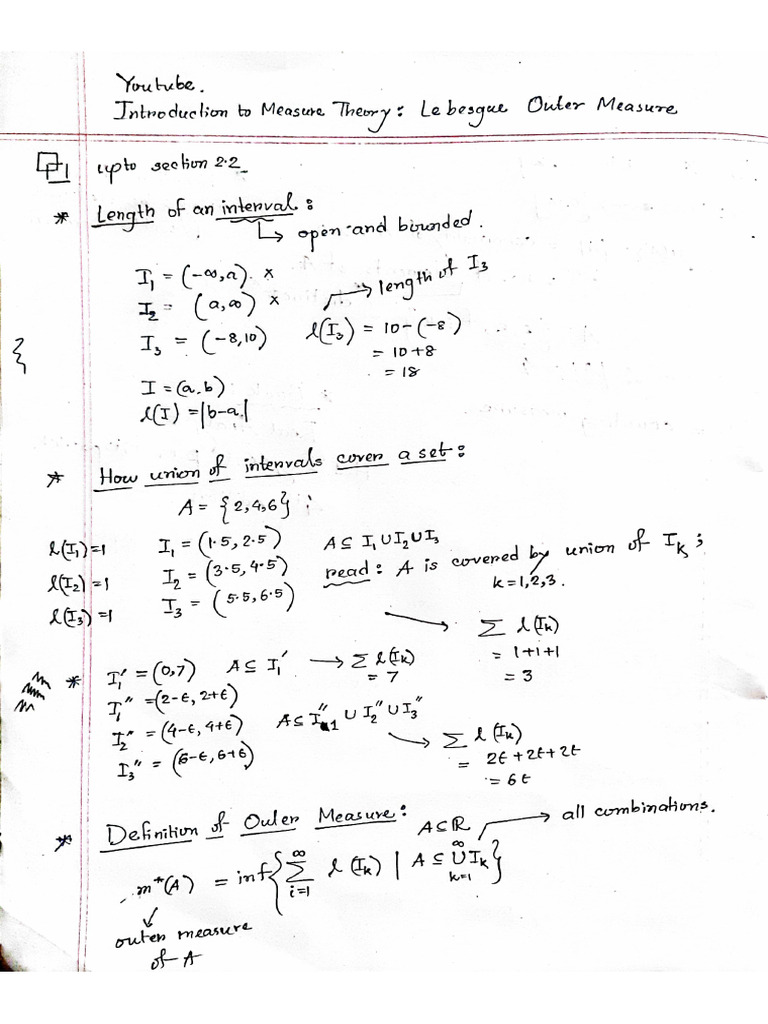 Youtube.
Introduction to Measure Theory: Lebesgue Outer Measure
1 upto section 2.2
* Length of an interval:
↳ open and bounded.
I₁ = (-∞,a) ×
I₂ = (a,∞) ×
→ length of I₃
I₃ = (-8,10) l(I₃) = 10-(-8)
= 10+8
= 18
I = (a,b)
l(I) = |b-a|
* How union of intervals cover a set:
A = {2,4,6};
l(I₁)=1 I₁ = (1.5, 2.5) A ⊆ I₁∪I₂∪I₃
l(I₂)=1 I₂ = (3.5, 4.5) read: A is covered by union of Iₖ;
k=1,2,3.
l(I₃)=1 I₃ = (5.5, 6.5)
→ Σ l(Iₖ)
= 1+1+1
= 3
* I₁' = (0,7) A ⊆ I₁' → Σ l(Iₖ)
= 7
I₁'' = (2-ϵ, 2+ϵ)
I₂'' = (4-ϵ, 4+ϵ) A ⊆ I₁'' ∪ I₂'' ∪ I₃''
I₃'' = (6-ϵ, 6+ϵ)
→ Σ l(Iₖ)
= 2ϵ+2ϵ+2ϵ
= 6ϵ
* Definition of Outer Measure:
A ⊆ ℝ → all combinations.
m*(A) = inf{ ∞Σi=1 l(Iₖ) | A ⊆ ∞∪k=1 Iₖ }
↓
outer measure
of A